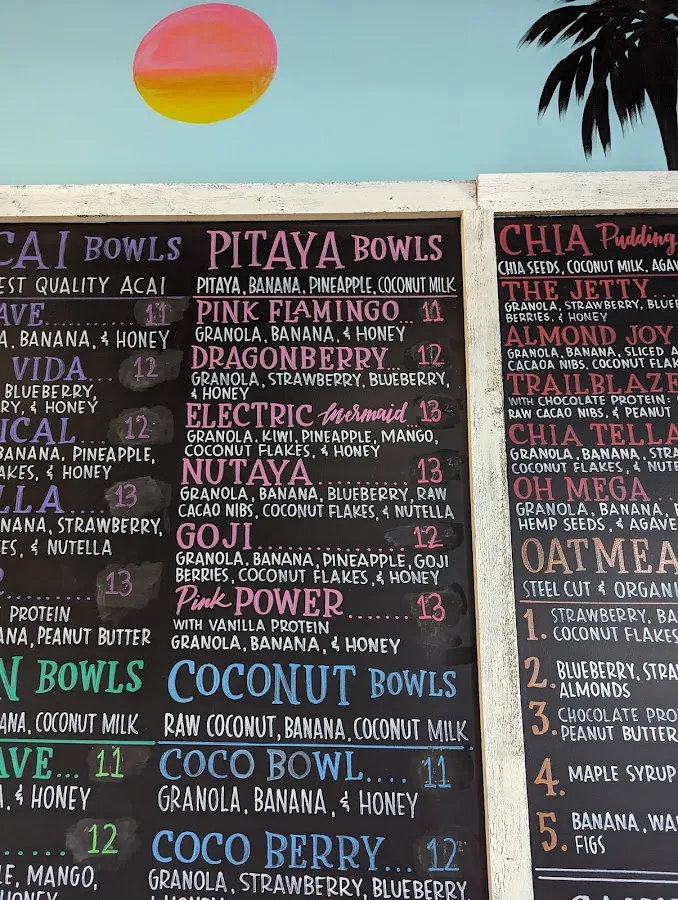 BOWLS
EST QUALITY ACAI
11
BANANA, & HONEY
VIDA... 12
BLUEBERRY,
& HONEY
12
BANANA, PINEAPPLE,
& HONEY
13
STRAWBERRY,
& NUTELLA
13
PROTEIN
PEANUT BUTTER
BOWLS
COCONUT MILK
11
& HONEY
12
MANGO,
HONEY
PITAYA BOWLS
PITAYA, BANANA, PINEAPPLE, COCONUT MILK
PINK FLAMINGO... 11
GRANOLA, BANANA, & HONEY
DRAGONBERRY.... 12
GRANOLA, STRAWBERRY, BLUEBERRY,
& HONEY
ELECTRIC Mermaid... 13
GRANOLA, KIWI, PINEAPPLE, MANGO,
COCONUT FLAKES, & HONEY
NUTAYA........... 13
GRANOLA, BANANA, BLUEBERRY, RAW
CACAO NIBS, COCONUT FLAKES, & NUTELLA
GOJI................ 12
GRANOLA, BANANA, PINEAPPLE, GOJI
BERRIES, COCONUT FLAKES, & HONEY
Pink POWER......... 13
WITH VANILLA PROTEIN
GRANOLA, BANANA, & HONEY
COCONUT BOWLS
RAW COCONUT, BANANA, COCONUT MILK
COCO BOWL.... 11
GRANOLA, BANANA, & HONEY
COCO BERRY... 12
GRANOLA, STRAWBERRY, BLUEBERRY,
& HONEY
CHIA Pudding
CHIA SEEDS, COCONUT MILK,
THE JETTY...
GRANOLA, STRAWBERRY,
BERRIES, & HONEY
ALMOND JOY
GRANOLA, BANANA, SLICED
CACAOA NIBS, COCONUT
WITH CHOCOLATE PROTEIN:
RAW CACAO NIBS, & PEANUT
CHIA
GRANOLA, BANANA,
COCONUT FLAKES, &
OH MEGA....
GRANOLA, BANANA,
HEMP SEEDS, & AGAVE
STEEL CUT &
1. STRAWBERRY,
COCONUT FLAKES
2. BLUEBERRY,
ALMONDS
3. CHOCOLATE
PEANUT BUTTER
4. MAPLE SYRUP
5. BANANA,
FIGS